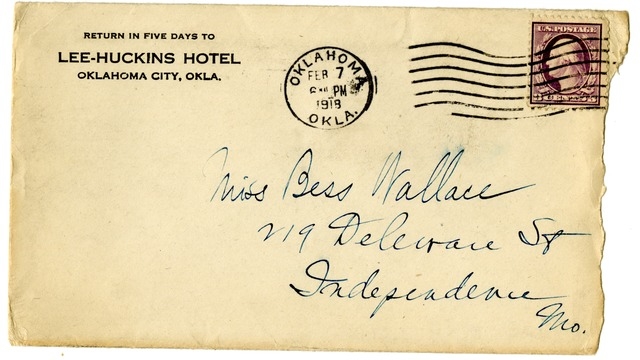 RETURN IN FIVE DAYS TO
LEE-HUCKINS HOTEL
OKLAHOMA CITY, OKLA.
OKLAHOMA
FEB 7
PM
1918
OKLA.
U.S. POSTAGE
Miss Bess Wallace
219 Deleware St
Independence
Mo.